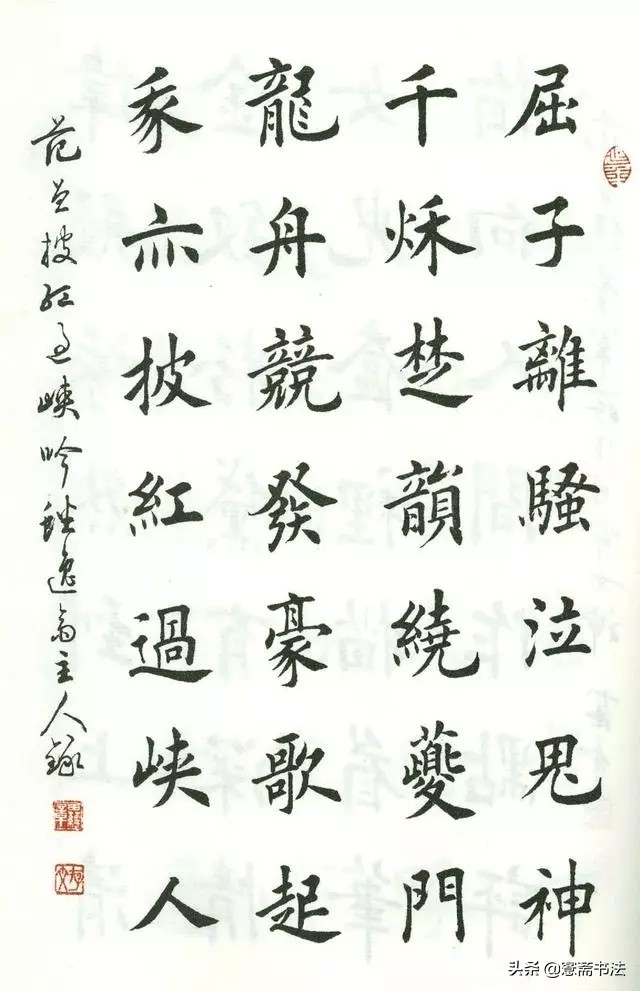 屈子離騷泣鬼神
千秌楚韻繞夔門
龍舟競發豪歌起
我亦披紅過峽人
范披紅過峽吟逸主人錄
头条 @斋书法